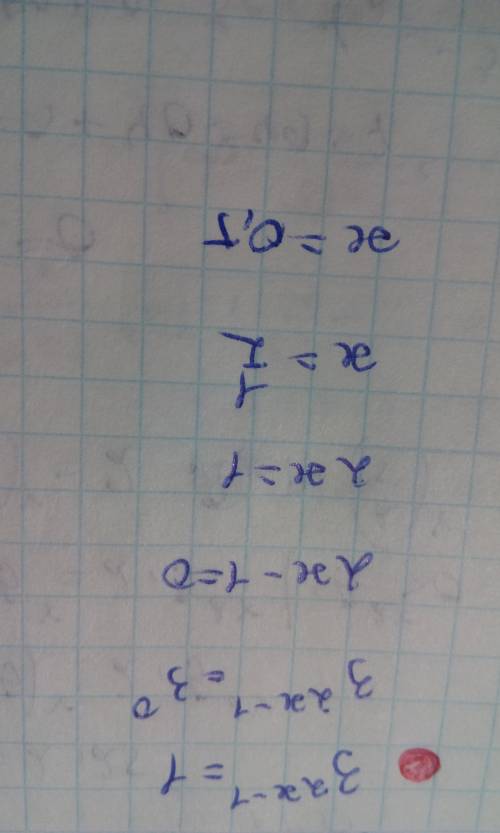 3^(2x-1) = 1
3^(2x-1) = 3^0
2x - 1 = 0
2x = 1
x = 1/2
x = 0,5